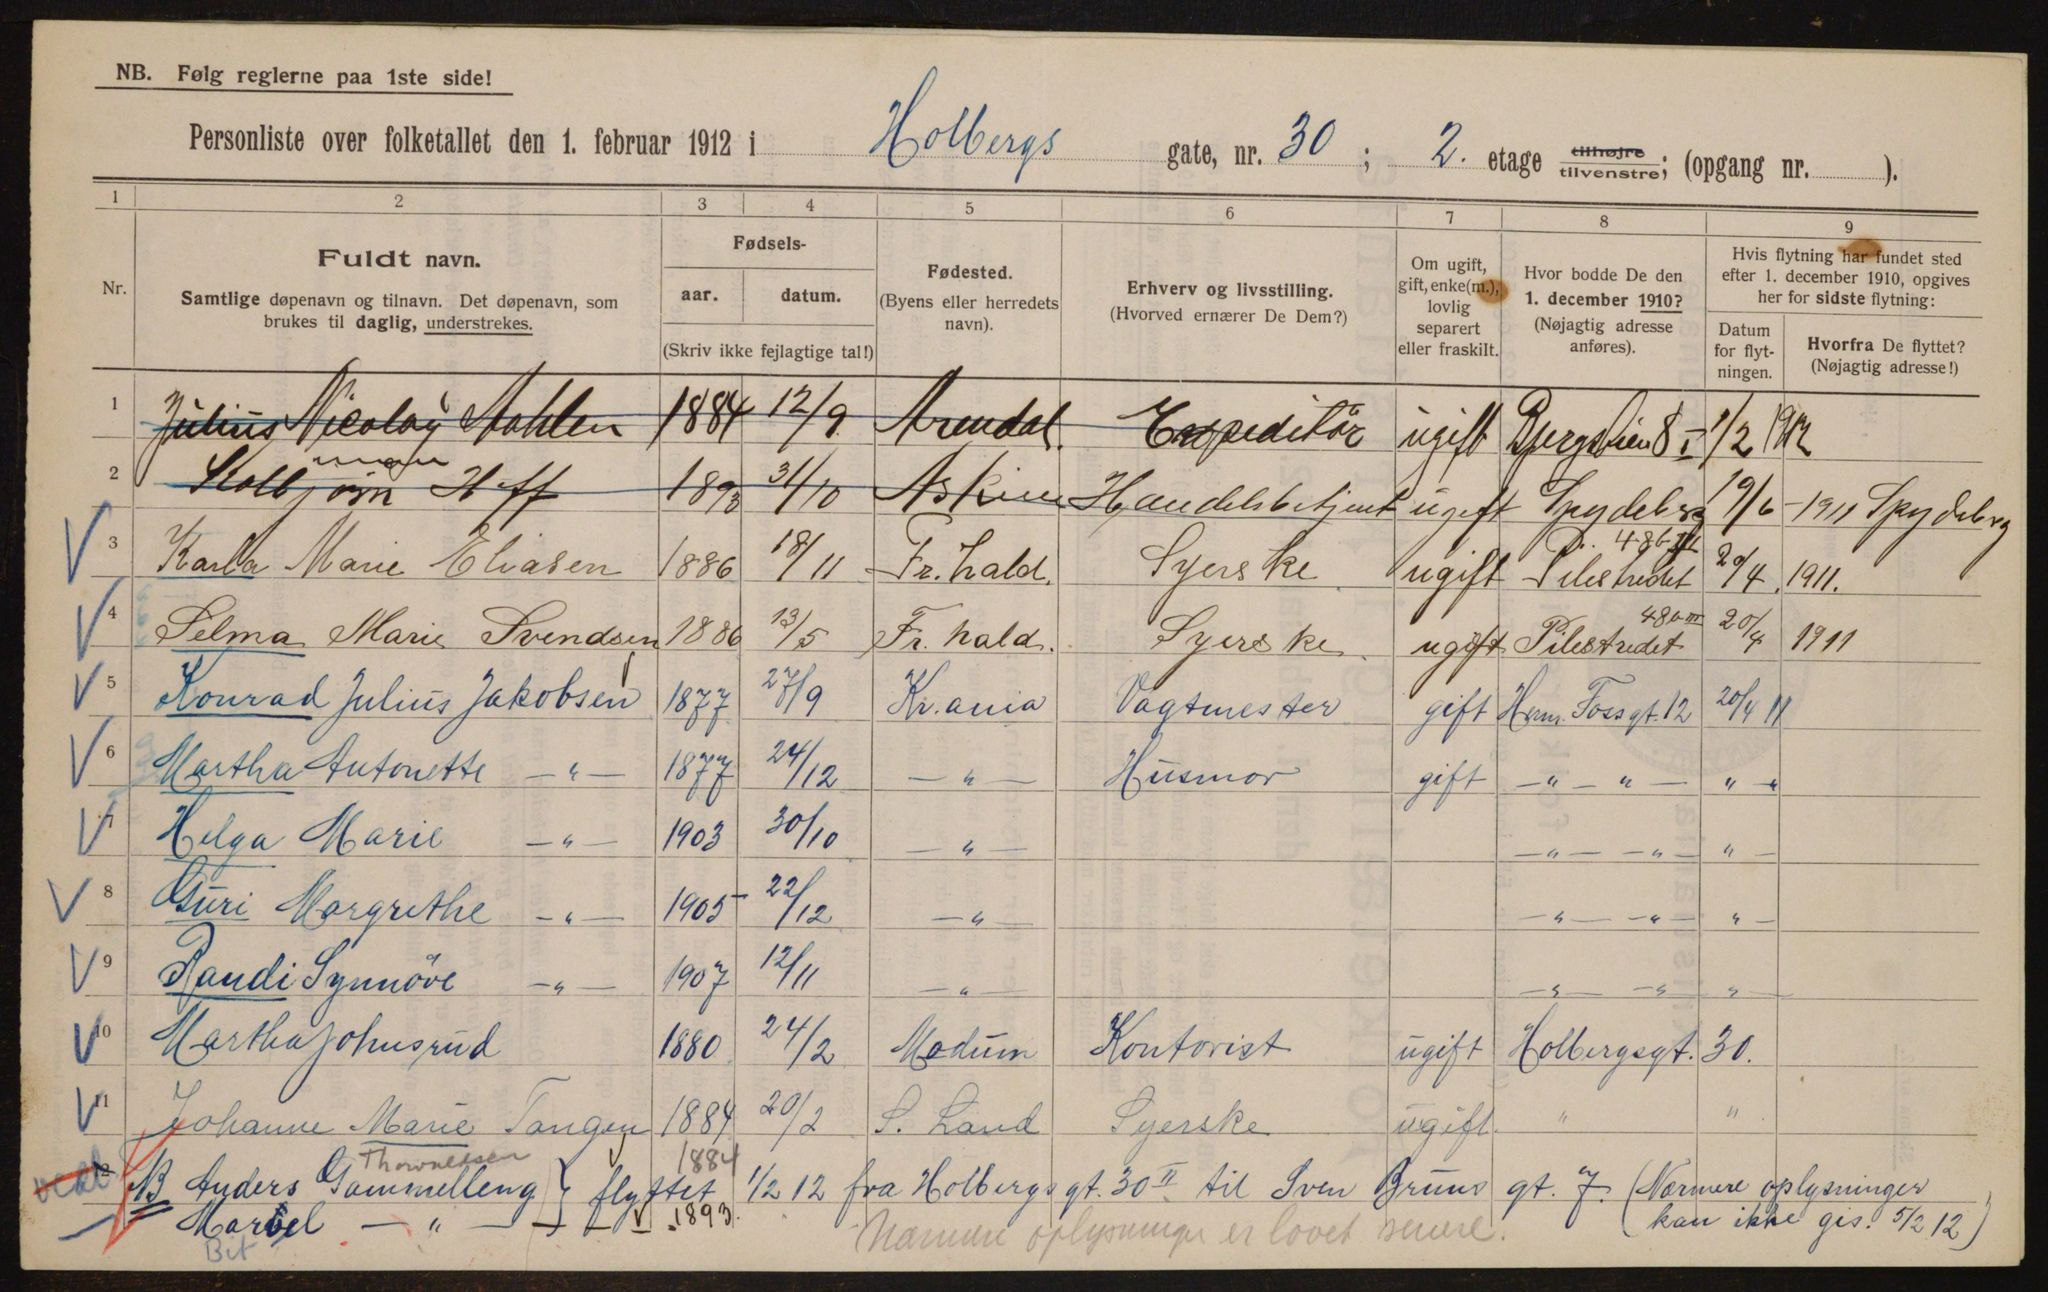 NB. Følg reglerne paa 1ste side!
Personliste over folketallet den 1. februar 1912 i Holbergs gate, nr. 30; 2. etage tilhøjre tilvenstre; (opgang nr. ).
1 2 3 4 5 6 7 8 9
Nr.
Fuldt navn.
Samtlige døpenavn og tilnavn. Det døpenavn, som
brukes til daglig, understrekes.
Fødsels-
aar. datum.
(Skriv ikke fejlagtige tal!)
Fødested.
(Byens eller herredets
navn).
Erhverv og livsstilling.
(Hvorved ernærer De Dem?)
Om ugift,
gift, enke(m.),
lovlig
separert
eller fraskilt.
Hvor bodde De den
1. december 1910?
(Nøjagtig adresse
anføres).
Hvis flytning har fundet sted
efter 1. december 1910, opgives
her for sidste flytning:
Datum
for flyt-
ningen.
Hvorfra De flyttet?
(Nøjagtig adresse!)
1 Julius Nicolay 1884 12/9 Arendal. Expeditör ugift 1/2 1912
2 Kolbjörn Hoff 1893 31/10 Askim Handelsbetjent ugift Spydeberg 19/6 - 1911 Spydeberg
3 Karla Marie Eliasen 1886 18/11 Fr. hald. Syerske ugift Pilestredet 48b III 20/4 1911.
4 Selma Marie Svendsen 1886 13/5 Fr. hald. Syerske ugift Pilestredet 48b III 20/4 1911
5 Konrad Julius Jakobsen 1877 27/9 Kr.ania Vagtmester gift Herm. Fossgt. 12 20/4 11
6 Martha Antonette — " — 1877 24/12 — " — Husmor gift — " — " — " — "
7 Helga Marie — " — 1903 30/10 — " — — " — — " — " —
8 Guri Margrethe — " — 1905 22/12 — " — — " — — " — " —
9 Randi Synnöve — " — 1907 12/11 — " — — " — — " — " —
10 Martha Johnsrud 1880 24/2 Modum Kontorist ugift Holbergsgt. 30.
11 Johanne Marie Tangen 1884 20/2 S. Land Syerske ugift. " "
12 NB Anders Gammelleng } flyttet 1884 1/2 12 fra Holbergsgt. 30 II til Sven Bruns gt. 7. (Nærmere oplysninger
— " — 1893. kan ikke gis. 5/2 12)
Nærmere oplysninger er lovet senere.